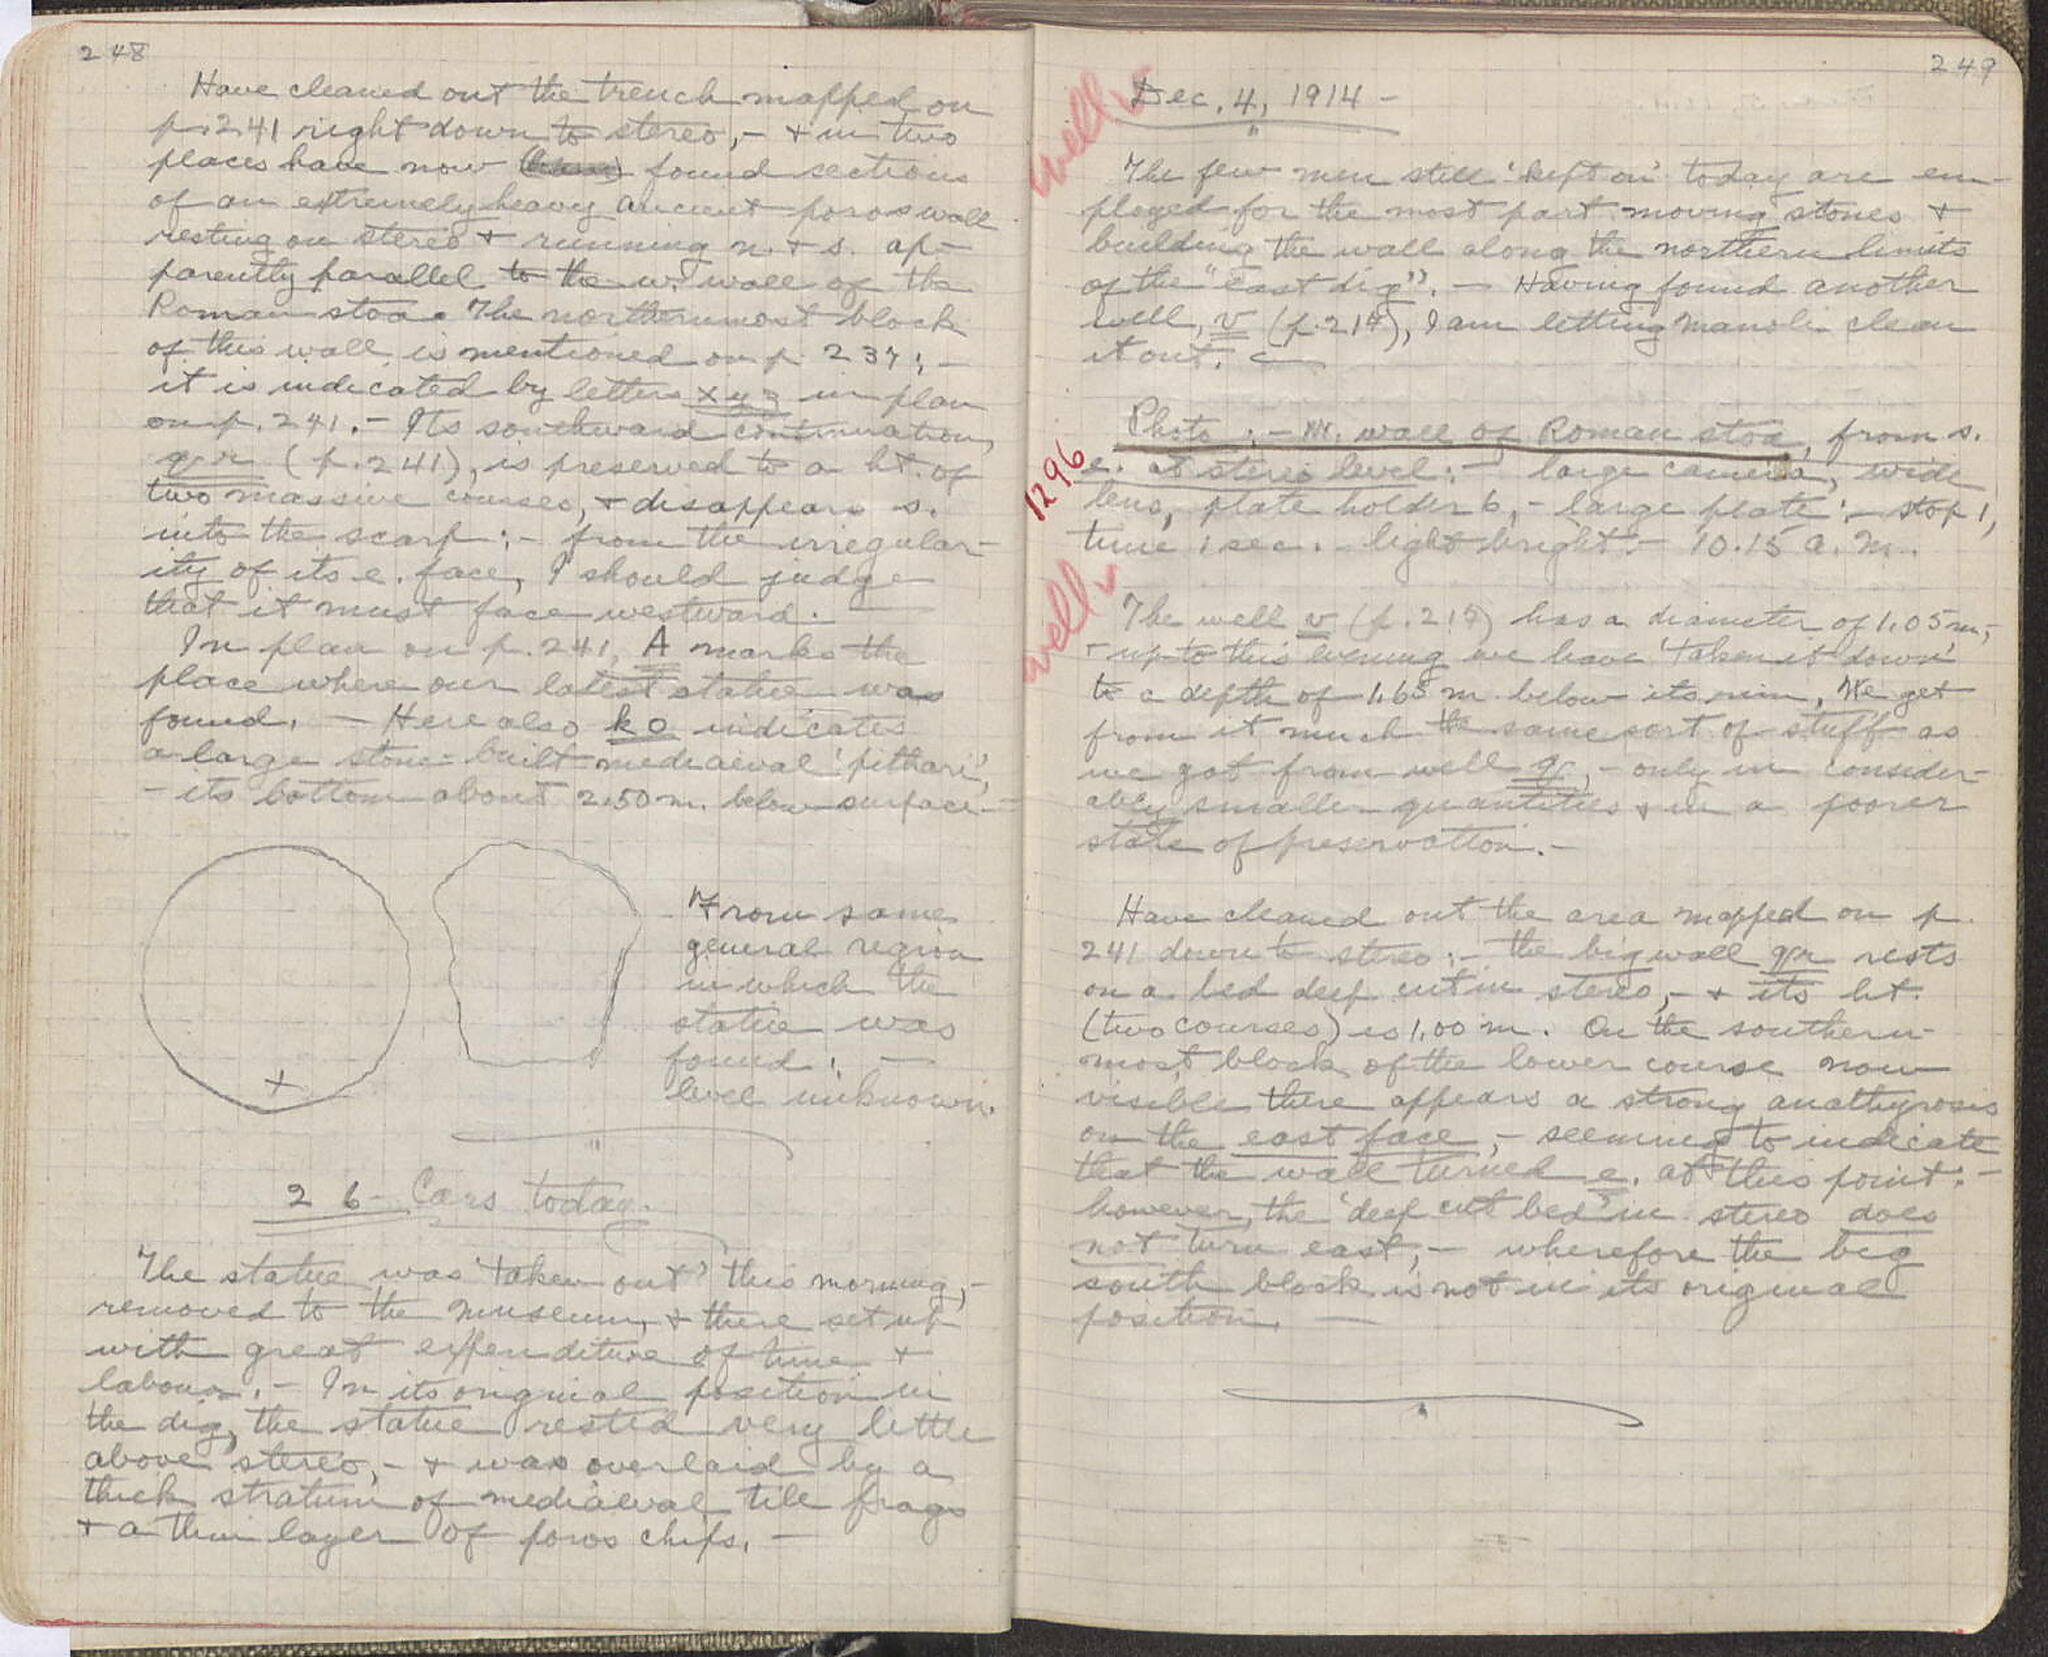 248
Have cleaned out the trench mapped on
p. 241 right down to stereo, - + in two
places have now found sections
of an extremely heavy ancient poros wall
resting on stereo + running n. + s. ap-
parently parallel to the w. wall of the
Roman stoa. The northernmost block
of this wall is mentioned on p. 237; -
it is indicated by letters x y z in plan
on p. 241. - Its southward continuation,
qr (p. 241), is preserved to a ht. of
two massive courses, + disappears s.
into the scarp: - from the irregular-
ity of its e. face, I should judge
that it must face westward. -
In plan on p. 241, A marks the
place where our latest statue was
found. - Here also k o indicates
a large stone-built mediaeval 'pithari',
- its bottom about 2.50 m. below surface. -
From same
general region
in which the
statue was
found: -
level unknown.
26 - Cars today.
The statue was 'taken out' this morning, -
removed to the museum, + there set up
with great expenditure of time +
labour. - In its original position in
the dig, the statue rested very little
above stereo, - + was overlaid by a
thick stratum of mediaeval tile frags
+ a thin layer of poros chips. -
249
Well v
Dec. 4, 1914 -
The few men still 'kept on' today are em-
ployed for the most part moving stones +
building the wall along the northern limits
of the "east dig". - Having found another
well, v (p. 217), I am letting Manoli clean
it out. -
1296
Photo: - w. wall of Roman stoa, from s.
e. at stereo level: - large camera, wide
lens, plate holder 6, - large plate: - stop 1,
time 1 sec. - light bright - 10.15 a.m.
Well v
The well v (p. 217) has a diameter of 1.05 m, -
+ up to this evening we have 'taken it down'
to a depth of 1.65 m. below its rim. We get
from it much the same sort of stuff as
we got from well q, - only in consider-
ably smaller quantities + in a poorer
state of preservation. -
Have cleaned out the area mapped on p.
241 down to stereo: - the big wall qr rests
on a bed deep cut in stereo, - + its ht.
(two courses) is 1.00 m. On the southern-
most block of the lower course now
visible there appears a strong anathyrosis
on the east face, - seeming to indicate
that the wall turned e. at this point: -
however, the 'deep cut bed' in stereo does
not turn east, - wherefore the big
south block is not in its original
position. -